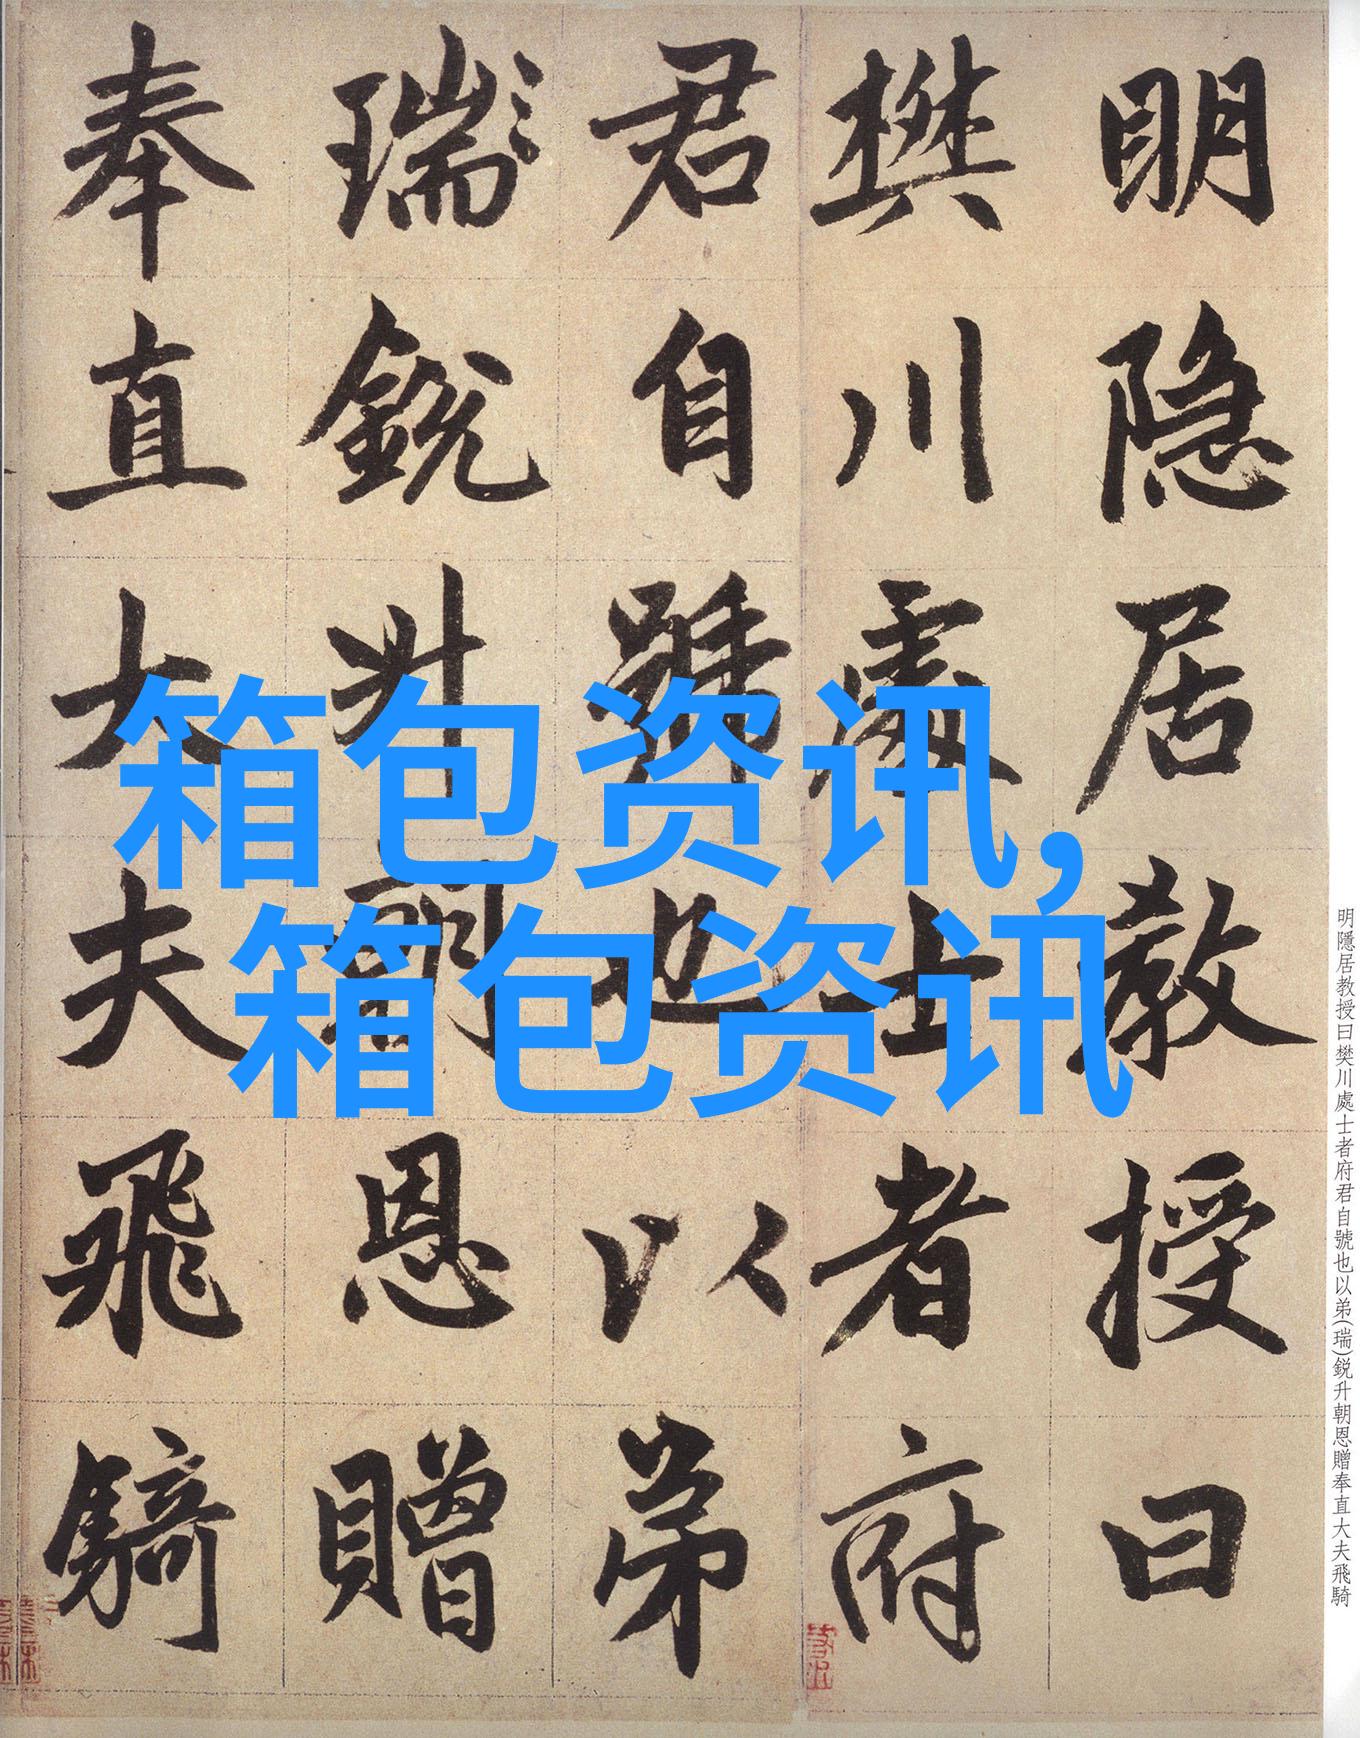 箱包资讯,
箱包资讯
明隐居教授曰
樊川處士者府
君自號也以弟
瑞銳升朝恩贈
奉直大夫飛騎
明隱居教授曰樊川處士者府君自號也以弟(瑞)鋭升朝恩贈奉直大夫飛騎